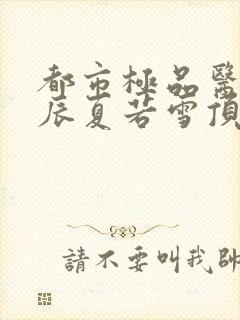 都市極品醫
辰夏若雪頂
請不要叫我帥